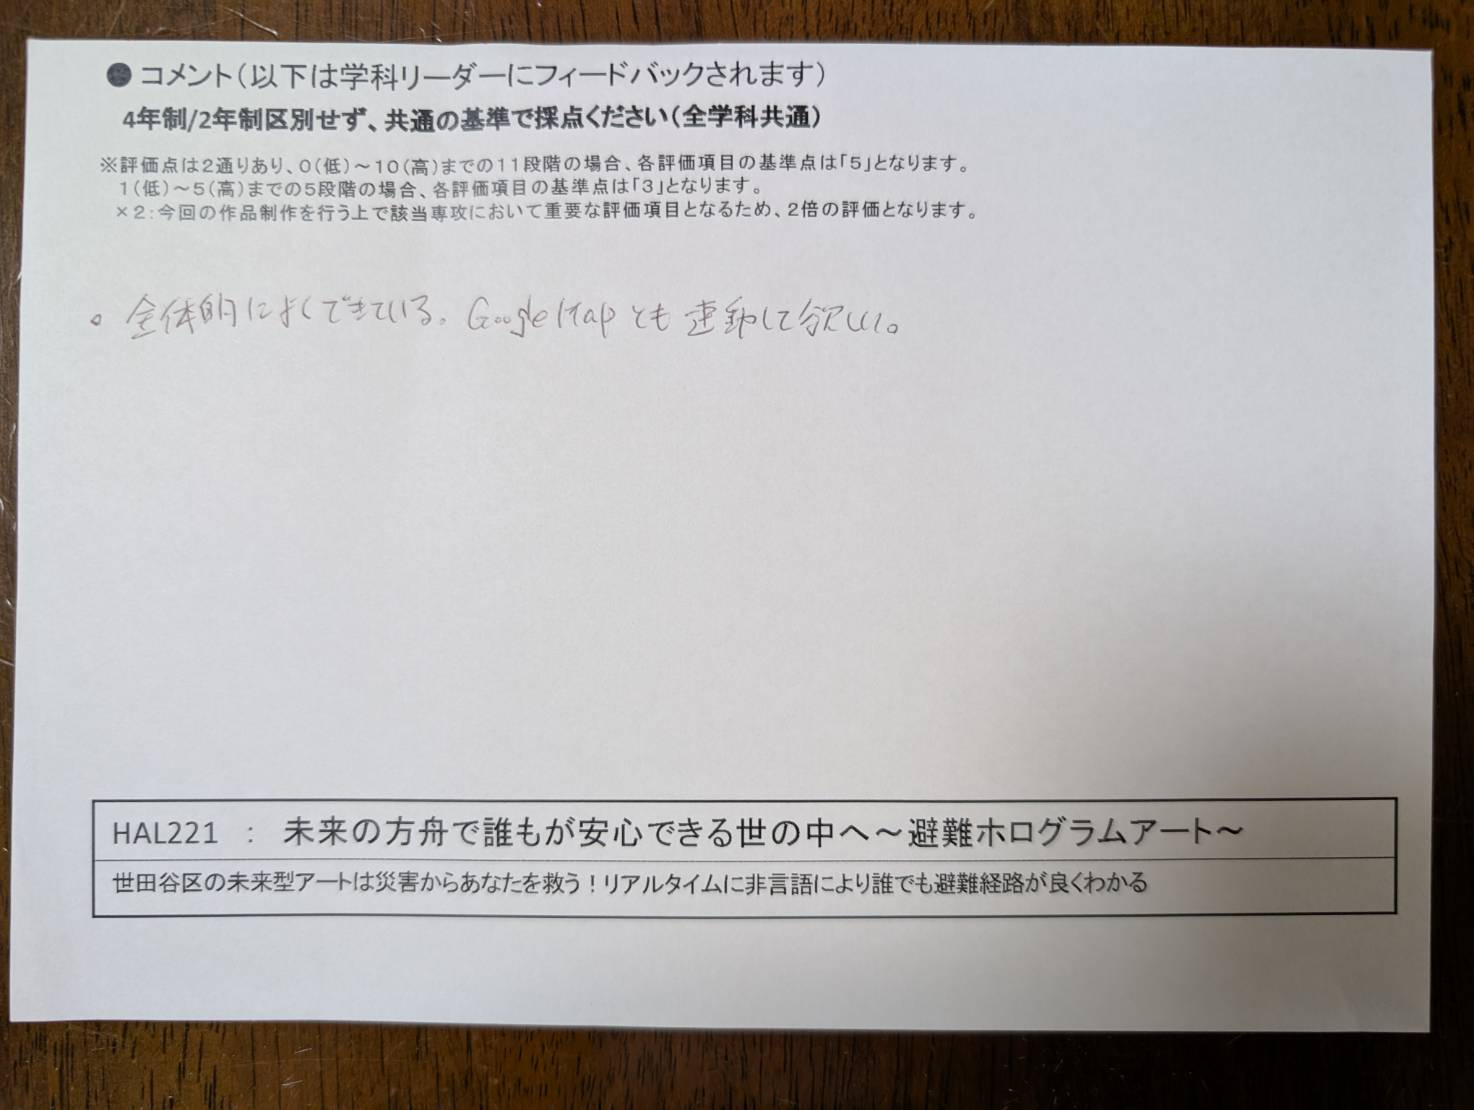 ●コメント（以下は学科リーダーにフィードバックされます）
4年制/2年制区別せず、共通の基準で採点ください（全学科共通）
※評価点は２通りあり、０（低）～１０（高）までの１１段階の場合、各評価項目の基準点は「５」となります。
１（低）～５（高）までの５段階の場合、各評価項目の基準点は「３」となります。
×２：今回の作品制作を行う上で該当専攻において重要な評価項目となるため、２倍の評価となります。
。全体的によくできている。Google Mapとも連動して欲しい。
HAL221 ： 未来の方舟で誰もが安心できる世の中へ～避難ホログラムアート～
世田谷区の未来型アートは災害からあなたを救う！リアルタイムに非言語により誰でも避難経路が良くわかる